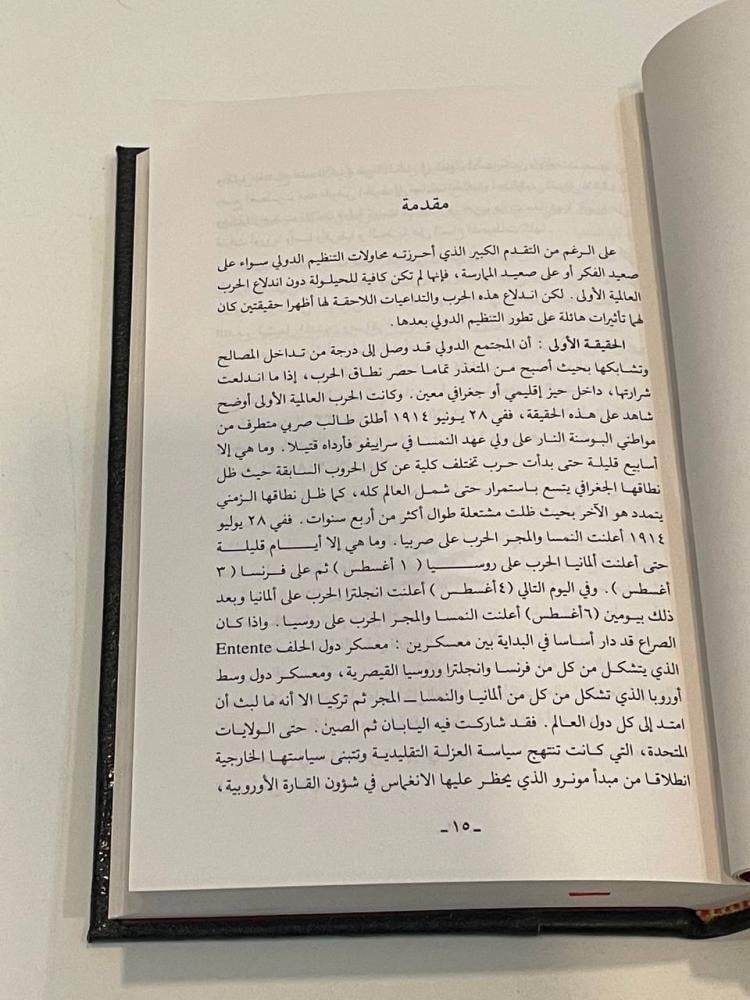 مقدمة
على الرغم من التقدم الكبير الذي أحرزته محاولات التنظيم الدولي سواء على
صعيد الفكر أو على صعيد الممارسة، فإنها لم تكن كافية للحيلولة دون اندلاع الحرب
العالمية الأولى. لكن اندلاع هذه الحرب والتداعيات اللاحقة لها أظهرا حقيقتين كان
لهما تأثيرات هائلة على تطور التنظيم الدولي بعدها.
الحقيقة الأولى : أن المجتمع الدولي قد وصل إلى درجة من تداخل المصالح
وتشابكها بحيث أصبح من المتعذر تماما حصر نطاق الحرب، إذا ما اندلعت
شرارتها، داخل حيز إقليمي أو جغرافي معين. وكانت الحرب العالمية الأولى أوضح
شاهد على هذه الحقيقة، ففي ٢٨ يونيو ١٩١٤ أطلق طالب صربي متطرف من
مواطني البوسنة النار على ولي عهد النمسا في سراييفو فأرداه قتيلا. وما هي إلا
أسابيع قليلة حتى بدأت حرب تختلف كلية عن كل الحروب السابقة حيث ظل
نطاقها الجغرافي يتسع باستمرار حتى شمل العالم كله، كما ظل نطاقها الزمني
يتمدد هو الآخر بحيث ظلت مشتعلة طوال أكثر من أربع سنوات. ففي ٢٨ يوليو
١٩١٤ أعلنت النمسا والمجر الحرب على صربيا. وما هي إلا أيام قليلة
حتى أعلنت ألمانيا الحرب على روسيا ( ١ أغسطس ) ثم على فرنسا ( ٣
أغسطس ). وفي اليوم التالي (٤ أغسطس ) أعلنت انجلترا الحرب على ألمانيا وبعد
ذلك بيومين (٦ أغسطس) أعلنت النمسا والمجر الحرب على روسيا. واذا كان
الصراع قد دار أساسا في البداية بين معسكرين : معسكر دول الحلف Entente
الذي يتشكل من كل من فرنسا وانجلترا وروسيا القيصرية، ومعسكر دول وسط
أوروبا الذي تشكل من كل من ألمانيا والنمسا ـ المجر ثم تركيا الا أنه ما لبث أن
امتد إلى كل دول العالم. فقد شاركت فيه اليابان ثم الصين. حتى الولايات
المتحدة، التي كانت تنتهج سياسة العزلة التقليدية وتتبنى سياستها الخارجية
انطلاقا من مبدأ مونرو الذي يحظر عليها الانغماس في شؤون القارة الأوروبية،
ـ ١٥ ـ